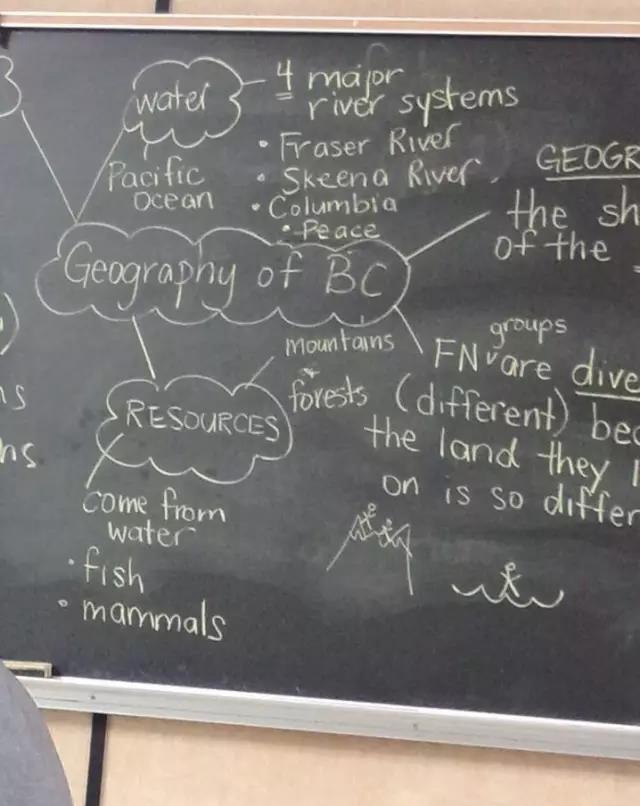 water
4 major
river systems
• Fraser River
• Skeena River
• Columbia
• Peace
Pacific
Ocean
Geography of BC
GEOGR
the sh
of the
groups
FN ᵛ are dive
(different) bec
the land they l
on is so differ
mountains
forests
RESOURCES
come from
water
• fish
• mammals